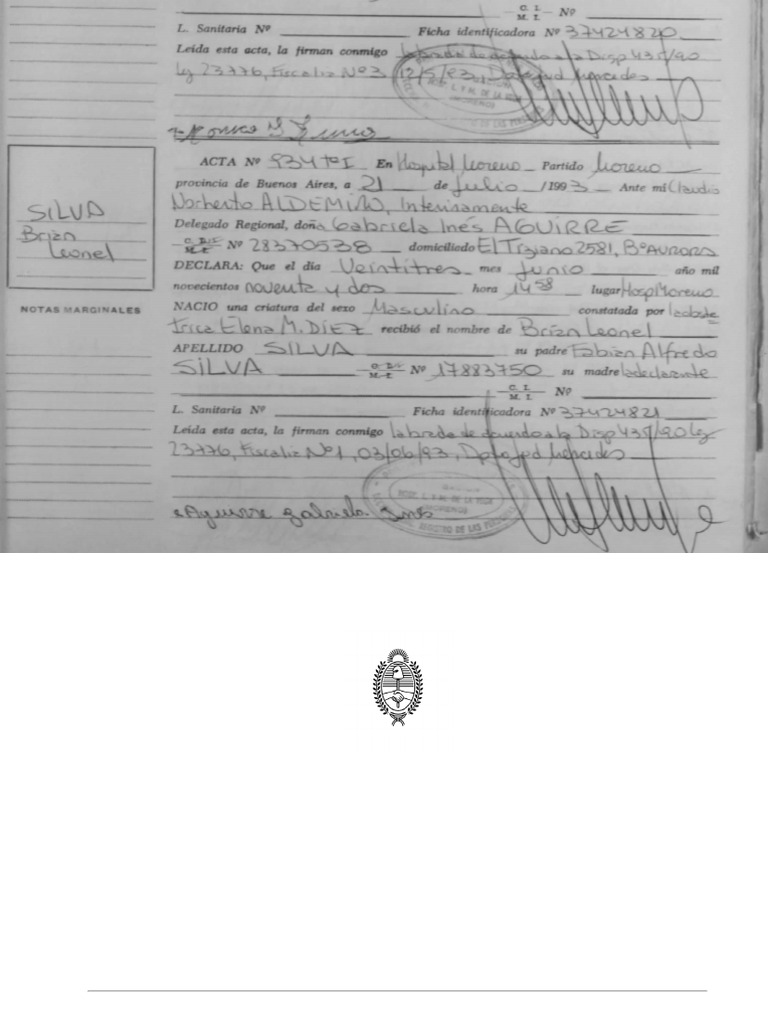 C. I.
M. I. Nº
L. Sanitaria Nº Ficha identificadora Nº 37424820
Leída esta acta, la firman conmigo labrada de acuerdo a la Disp 435/90
ley 23776, Fiscalia Nº3, 12/5/93, Dptojud Mercedes
ACTA Nº 934 tº I En Hospital Moreno Partido Moreno
provincia de Buenos Aires, a 21 de Julio /1993 Ante mi Claudio
Norberto, Interinamente
Delegado Regional, doña Gabriela Inés AGUIRRE
Nº 28370538 domiciliado 2581, BºAURORA
SILVA
Brian
Leonel
DECLARA: Que el día Veintitres mes Junio año mil
novecientos noventa y dos hora 14 58 lugar Hosp Moreno
NOTAS MARGINALES
NACIO una criatura del sexo Masculino constatada por la obste
trica Elena M. DIEZ recibió el nombre de Brian Leonel
APELLIDO SILVA su padre Fabian Alfredo
SILVA Nº 17883750 su madre la declarante
C. I.
M. I. Nº
L. Sanitaria Nº Ficha identificadora Nº 37424821
Leída esta acta, la firman conmigo labrada de acuerdo a la Disp 435/90 ley
23776, Fiscalia Nº1, 03/06/93, Dptojud Mercedes
Aguirre Gabriela Ines
REGISTRO DE LAS PERSONAS